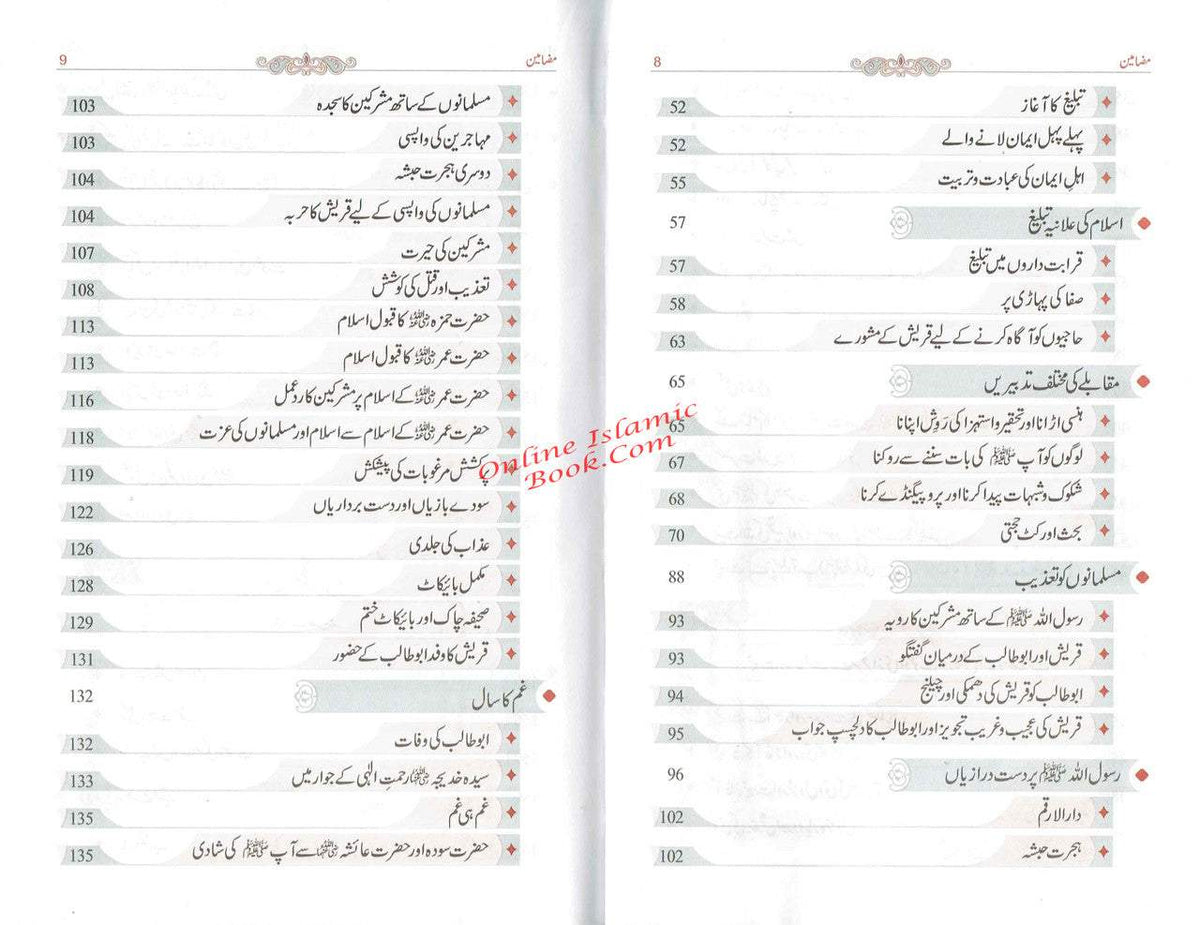 مضامین 8
تبلیغ کا آغاز 52
پہلے پہل ایمان لانے والے 52
اہلِ ایمان کی عبادت و تربیت 55
اسلام کی علانیہ تبلیغ 57
قرابت داروں میں تبلیغ 57
صفا کی پہاڑی پر 58
حاجیوں کو آگاہ کرنے کے لیے قریش کے مشورے 63
مقابلے کی مختلف تدبیریں 65
ہنسی اڑانا اور تحقیر و استہزا کی رَوِش اپنانا 65
لوگوں کو آپ ﷺ کی بات سننے سے روکنا 67
شکوک و شبہات پیدا کرنا اور پروپیگنڈے کرنا 68
بحث اور کٹ حجتی 70
مسلمانوں کو تعذیب 88
رسول اللہ ﷺ کے ساتھ مشرکین کا رویہ 93
قریش اور ابو طالب کے درمیان گفتگو 93
ابو طالب کو قریش کی دھمکی اور چیلنج 94
قریش کی عجیب و غریب تجویز اور ابو طالب کا دلچسپ جواب 95
رسول اللہ ﷺ پر دست درازیاں 96
دار الارقم 102
ہجرت حبشہ 102
مضامین 9
مسلمانوں کے ساتھ مشرکین کا سجدہ 103
مہاجرین کی واپسی 103
دوسری ہجرت حبشہ 104
مسلمانوں کی واپسی کے لیے قریش کا حربہ 104
مشرکین کی حیرت 107
تعذیب اور قتل کی کوشش 108
حضرت حمزہ رضی اللہ عنہ کا قبول اسلام 113
حضرت عمر رضی اللہ عنہ کا قبول اسلام 113
حضرت عمر رضی اللہ عنہ کے اسلام پر مشرکین کا ردعمل 116
حضرت عمر رضی اللہ عنہ کے اسلام سے اسلام اور مسلمانوں کی عزت 118
پرکشش مرغوبات کی پیشکش 119
سودے بازیاں اور دست برداریاں 122
عذاب کی جلدی 126
مکمل بائیکاٹ 128
صحیفہ چاک اور بائیکاٹ ختم 129
قریش کا وفد ابو طالب کے حضور 131
غم کا سال 132
ابو طالب کی وفات 132
سیدہ خدیجہ رضی اللہ عنہا رحمتِ الٰہی کے جوار میں 133
غم ہی غم 135
حضرت سودہ اور حضرت عائشہ رضی اللہ عنہما سے آپ ﷺ کی شادی 135
Online Islamic
Book.Com